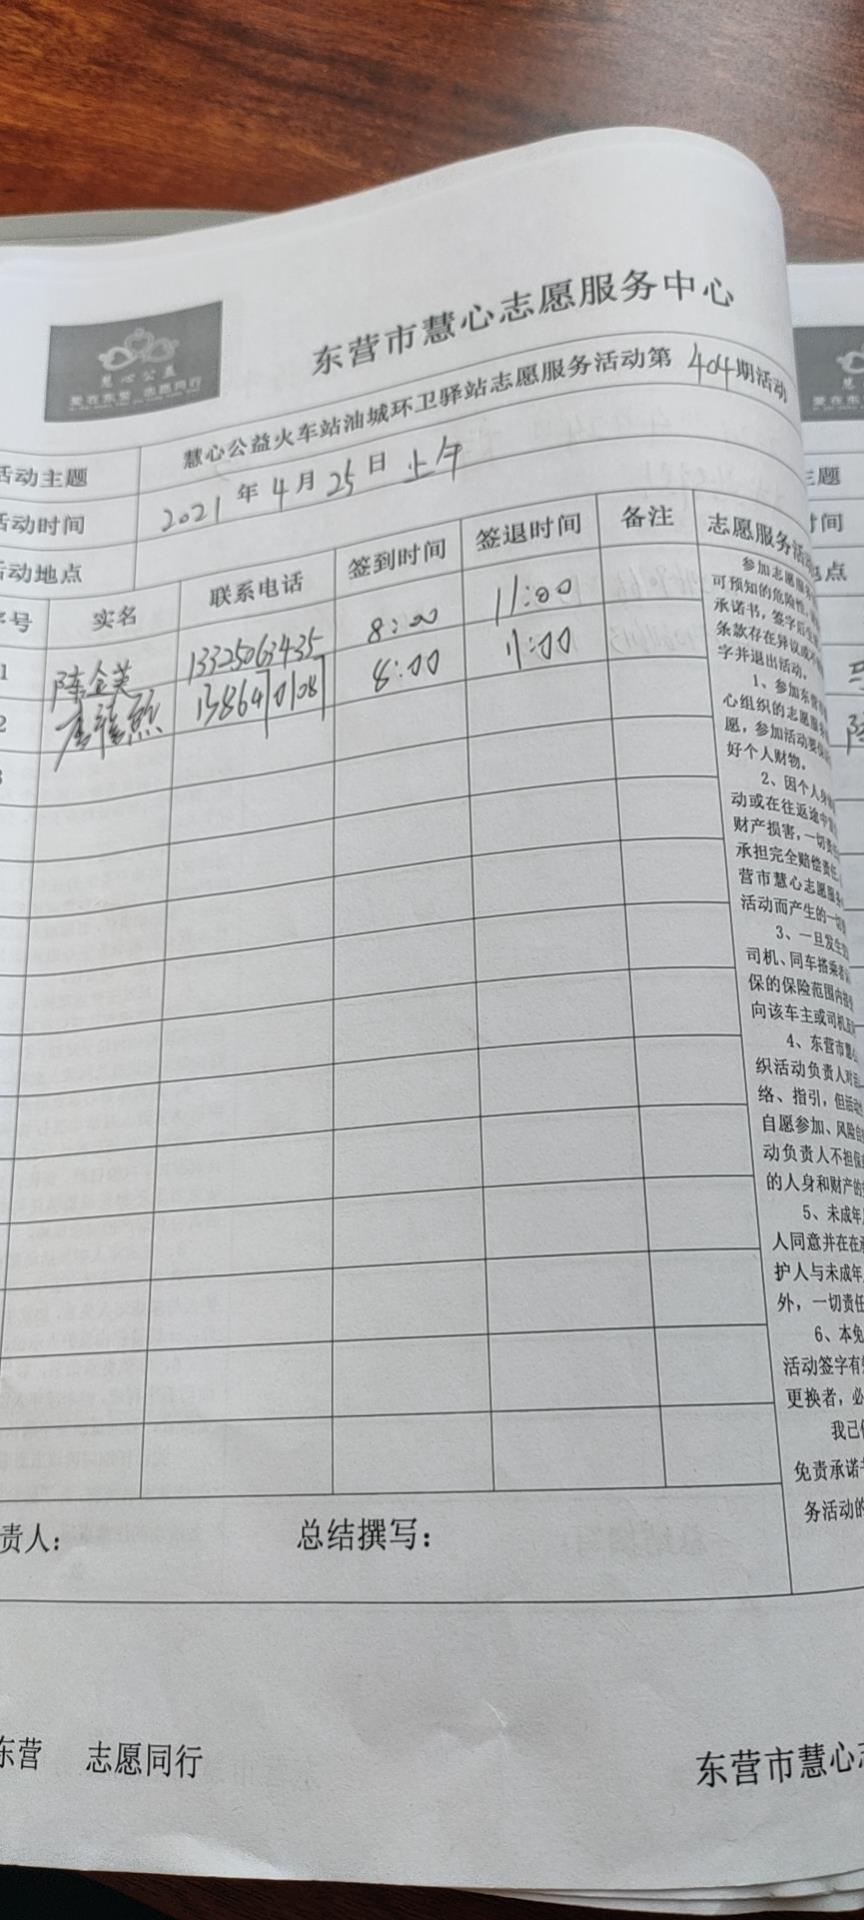 东营市慧心志愿服务中心
慧心公益
爱在东营 志愿同行
活动主题 慧心公益火车站油城环卫驿站志愿服务活动第404期活动
活动时间 2021年4月25日上午
活动地点
序号 实名 联系电话 签到时间 签退时间 备注 志愿服务活
1 陈金美 13325063435 8:00 11:00
2 13864701081 8:00 11:00
3
参加志愿服务
可预知的危险性
承诺书，签字后
条款存在异议或不
字并退出活动。
1、参加东营
心组织的志愿服务
愿，参加活动要保
好个人财物。
2、因个人身
动或在往返途中
财产损害，一切责
承担完全赔偿责任
营市慧心志愿服务
活动而产生的一切
3、一旦发生
司机、同车搭乘者
保的保险范围内
向该车主或司机
4、东营市慧
织活动负责人对
络、指引，但活动
自愿参加、风险自
动负责人不担保
的人身和财产的
5、未成年
人同意并在在
护人与未成年
外，一切责任
6、本免
活动签字有
更换者，必
我已
免责承诺书
务活动的
责人： 总结撰写：
东营 志愿同行 东营市慧心志